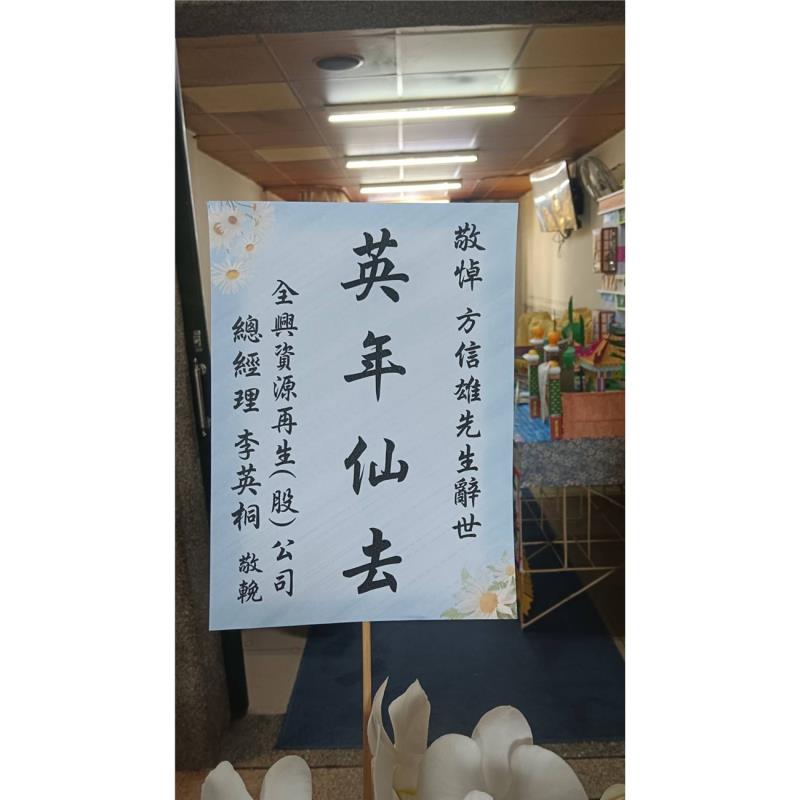 敬悼 方信雄先生辭世
英年仙去
全興資源再生(股)公司
總經理 李英桐 敬輓